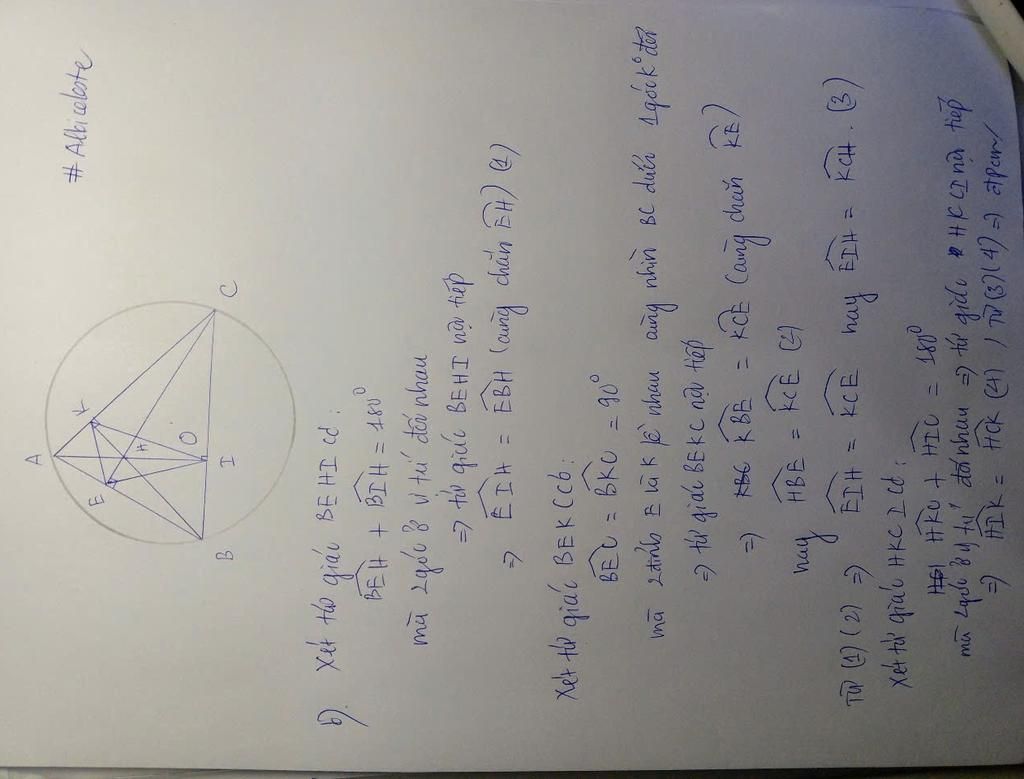 # Albiceleste
A
E
K
H
O
B
I
C
b). Xét tứ giác BEHI có:
BEH + BIH = 180°
mà 2 góc ở vị trí đối nhau
=> tứ giác BEHI nội tiếp
=> EIH = EBH (cùng chắn EH) (1)
Xét tứ giác BEKC có:
BEC = BKC = 90°
mà 2 đỉnh E và K kề nhau cùng nhìn BC dưới 1 góc k° đổi
=> tứ giác BEKC nội tiếp
=> KBE = KCE (cùng chắn KE)
hay HBE = KCE (2)
Từ (1) (2) => EIH = KCE hay EIH = KCH. (3)
Xét tứ giác HKCI có:
HKC + HIC = 180°
mà 2 góc ở vị trí đối nhau => tứ giác HKCI nội tiếp
=> HIK = HCK (4), Từ (3) (4) => đpcm